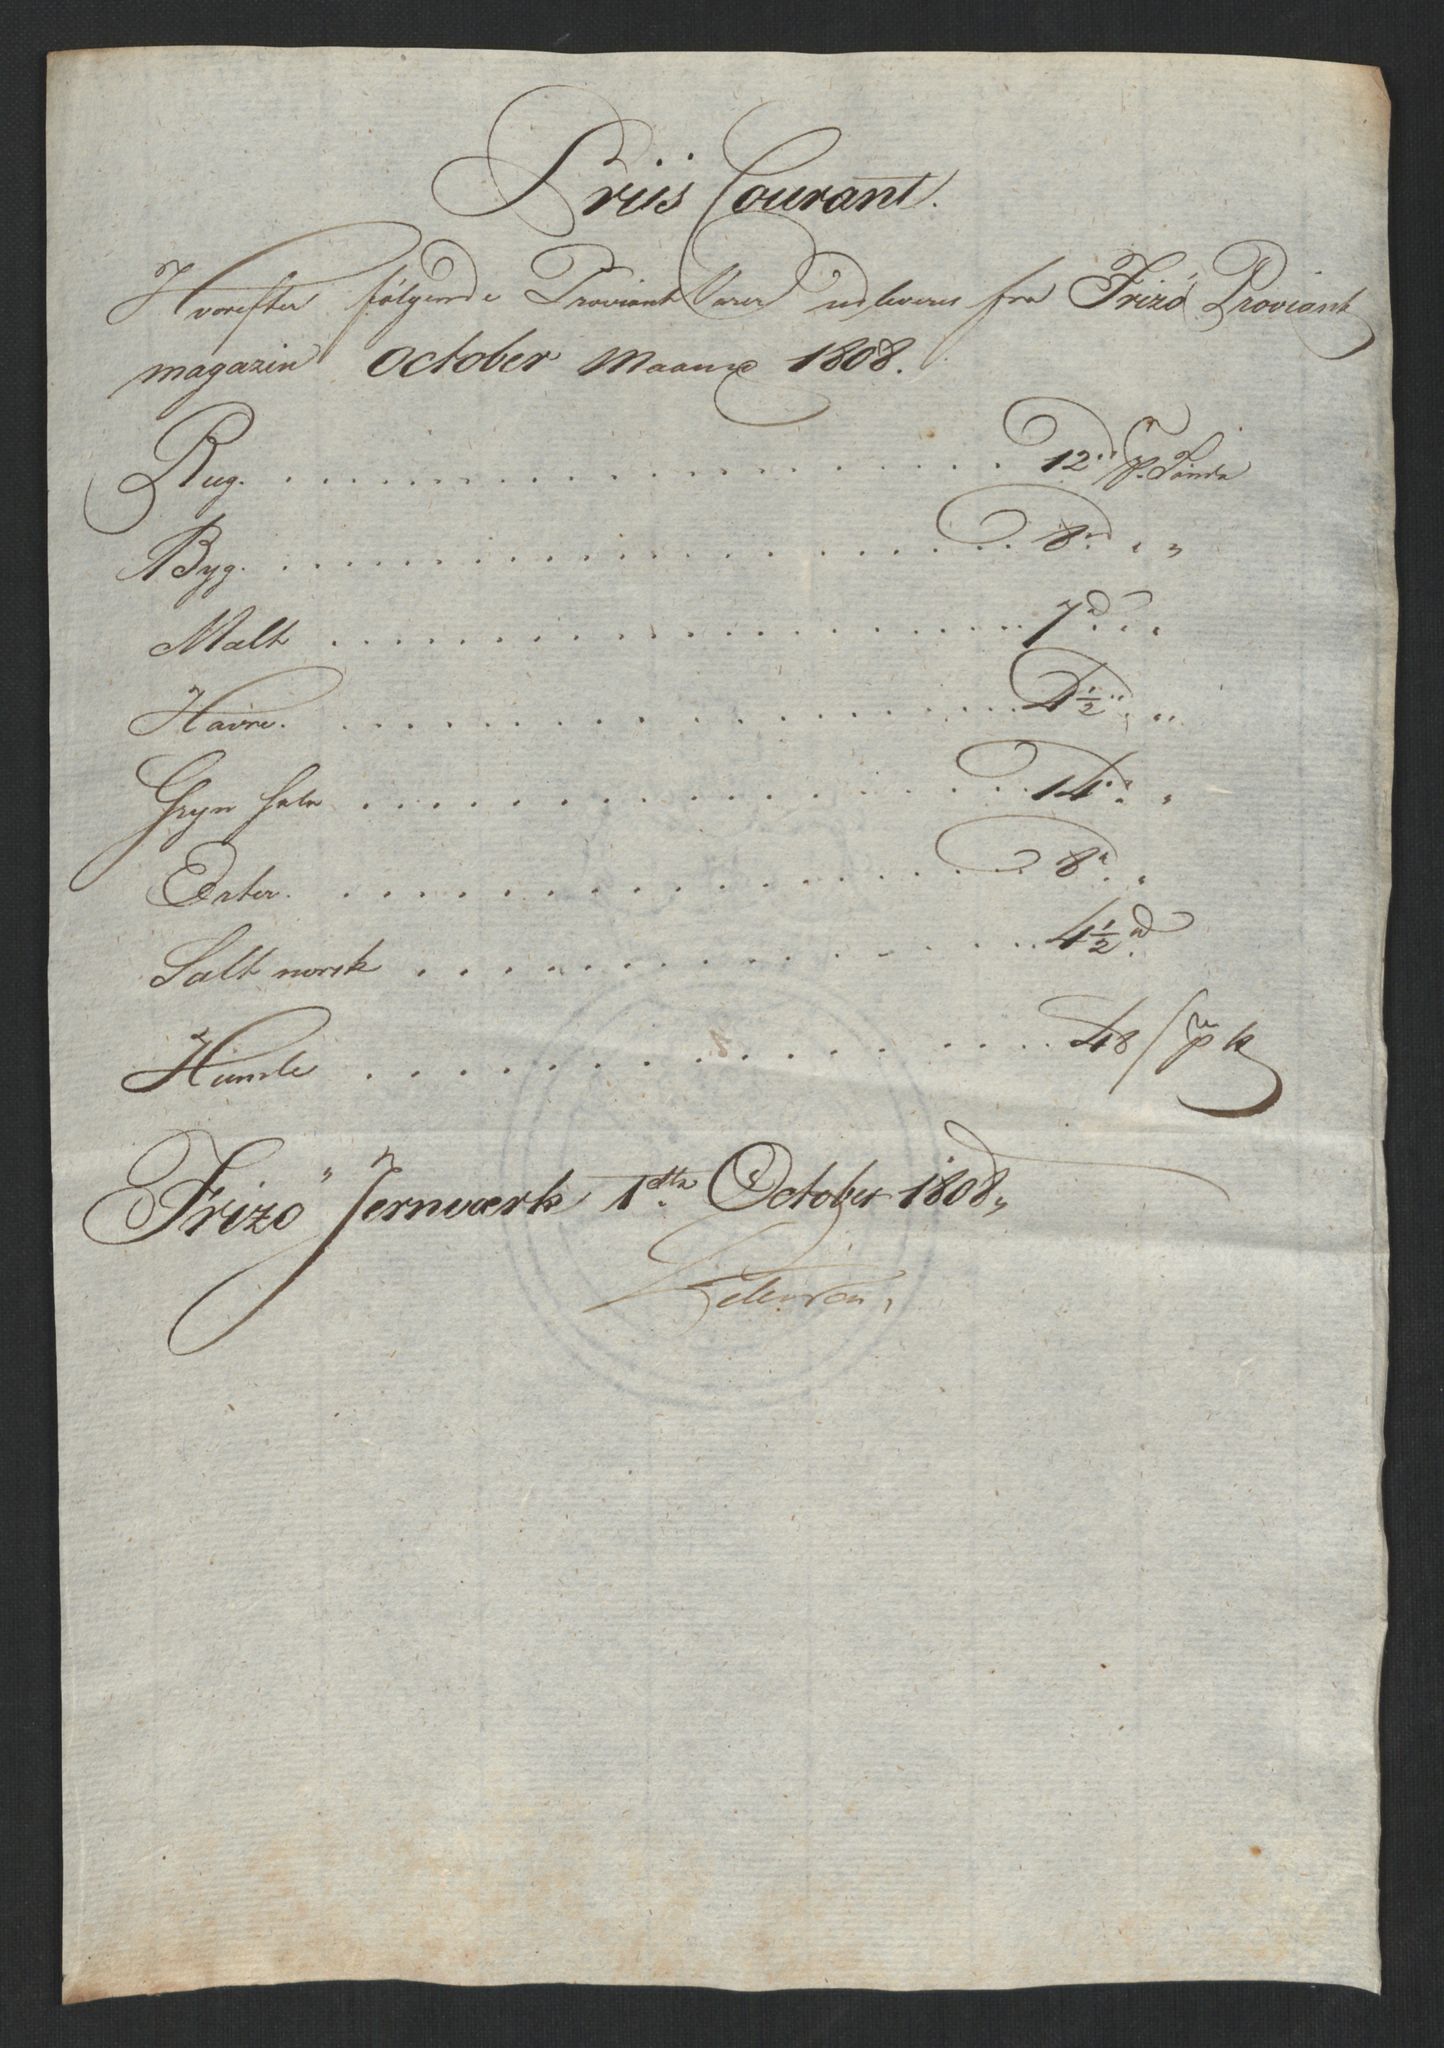 Priis Courant.
Hvorefter følgende Proviant Varer udleveres fra Frizö Proviant
magazin October Maane 1808.
Rug. . . . . . . . . . . . . . . . . . 12 rd pr. Tønde
Byg. . . . . . . . . . . . . . . . . . 8 rd " "
Malt . . . . . . . . . . . . . . . . . 7 rd " "
Havre. . . . . . . . . . . . . . . . . 4½ rd " "
Gryn hele . . . . . . . . . . . . . . . 14 rd " "
Erter. . . . . . . . . . . . . . . . . 8 rd "
Salt norsk . . . . . . . . . . . . . . . 4½ rd
Humle . . . . . . . . . . . . . . . . . 48 / pr
Frizö Jernværk 1ste October 1808,